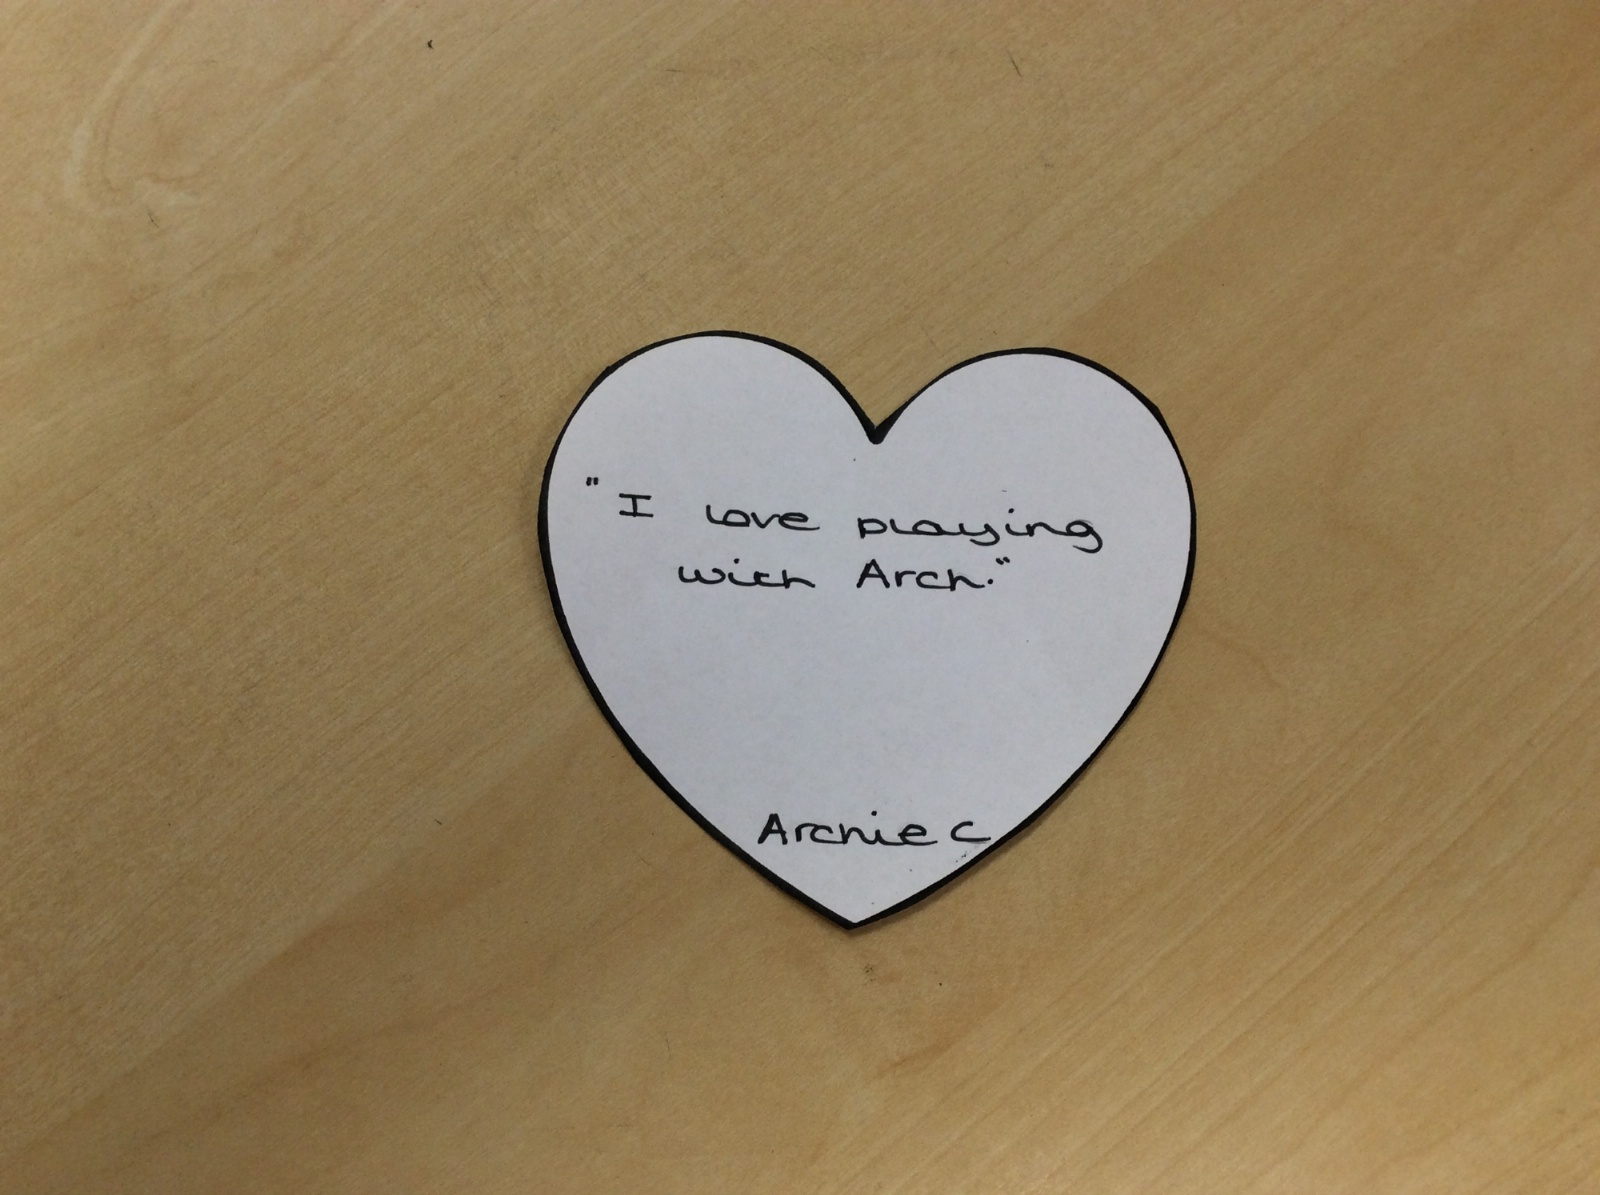 "I love playing
with Arch."
Archie C